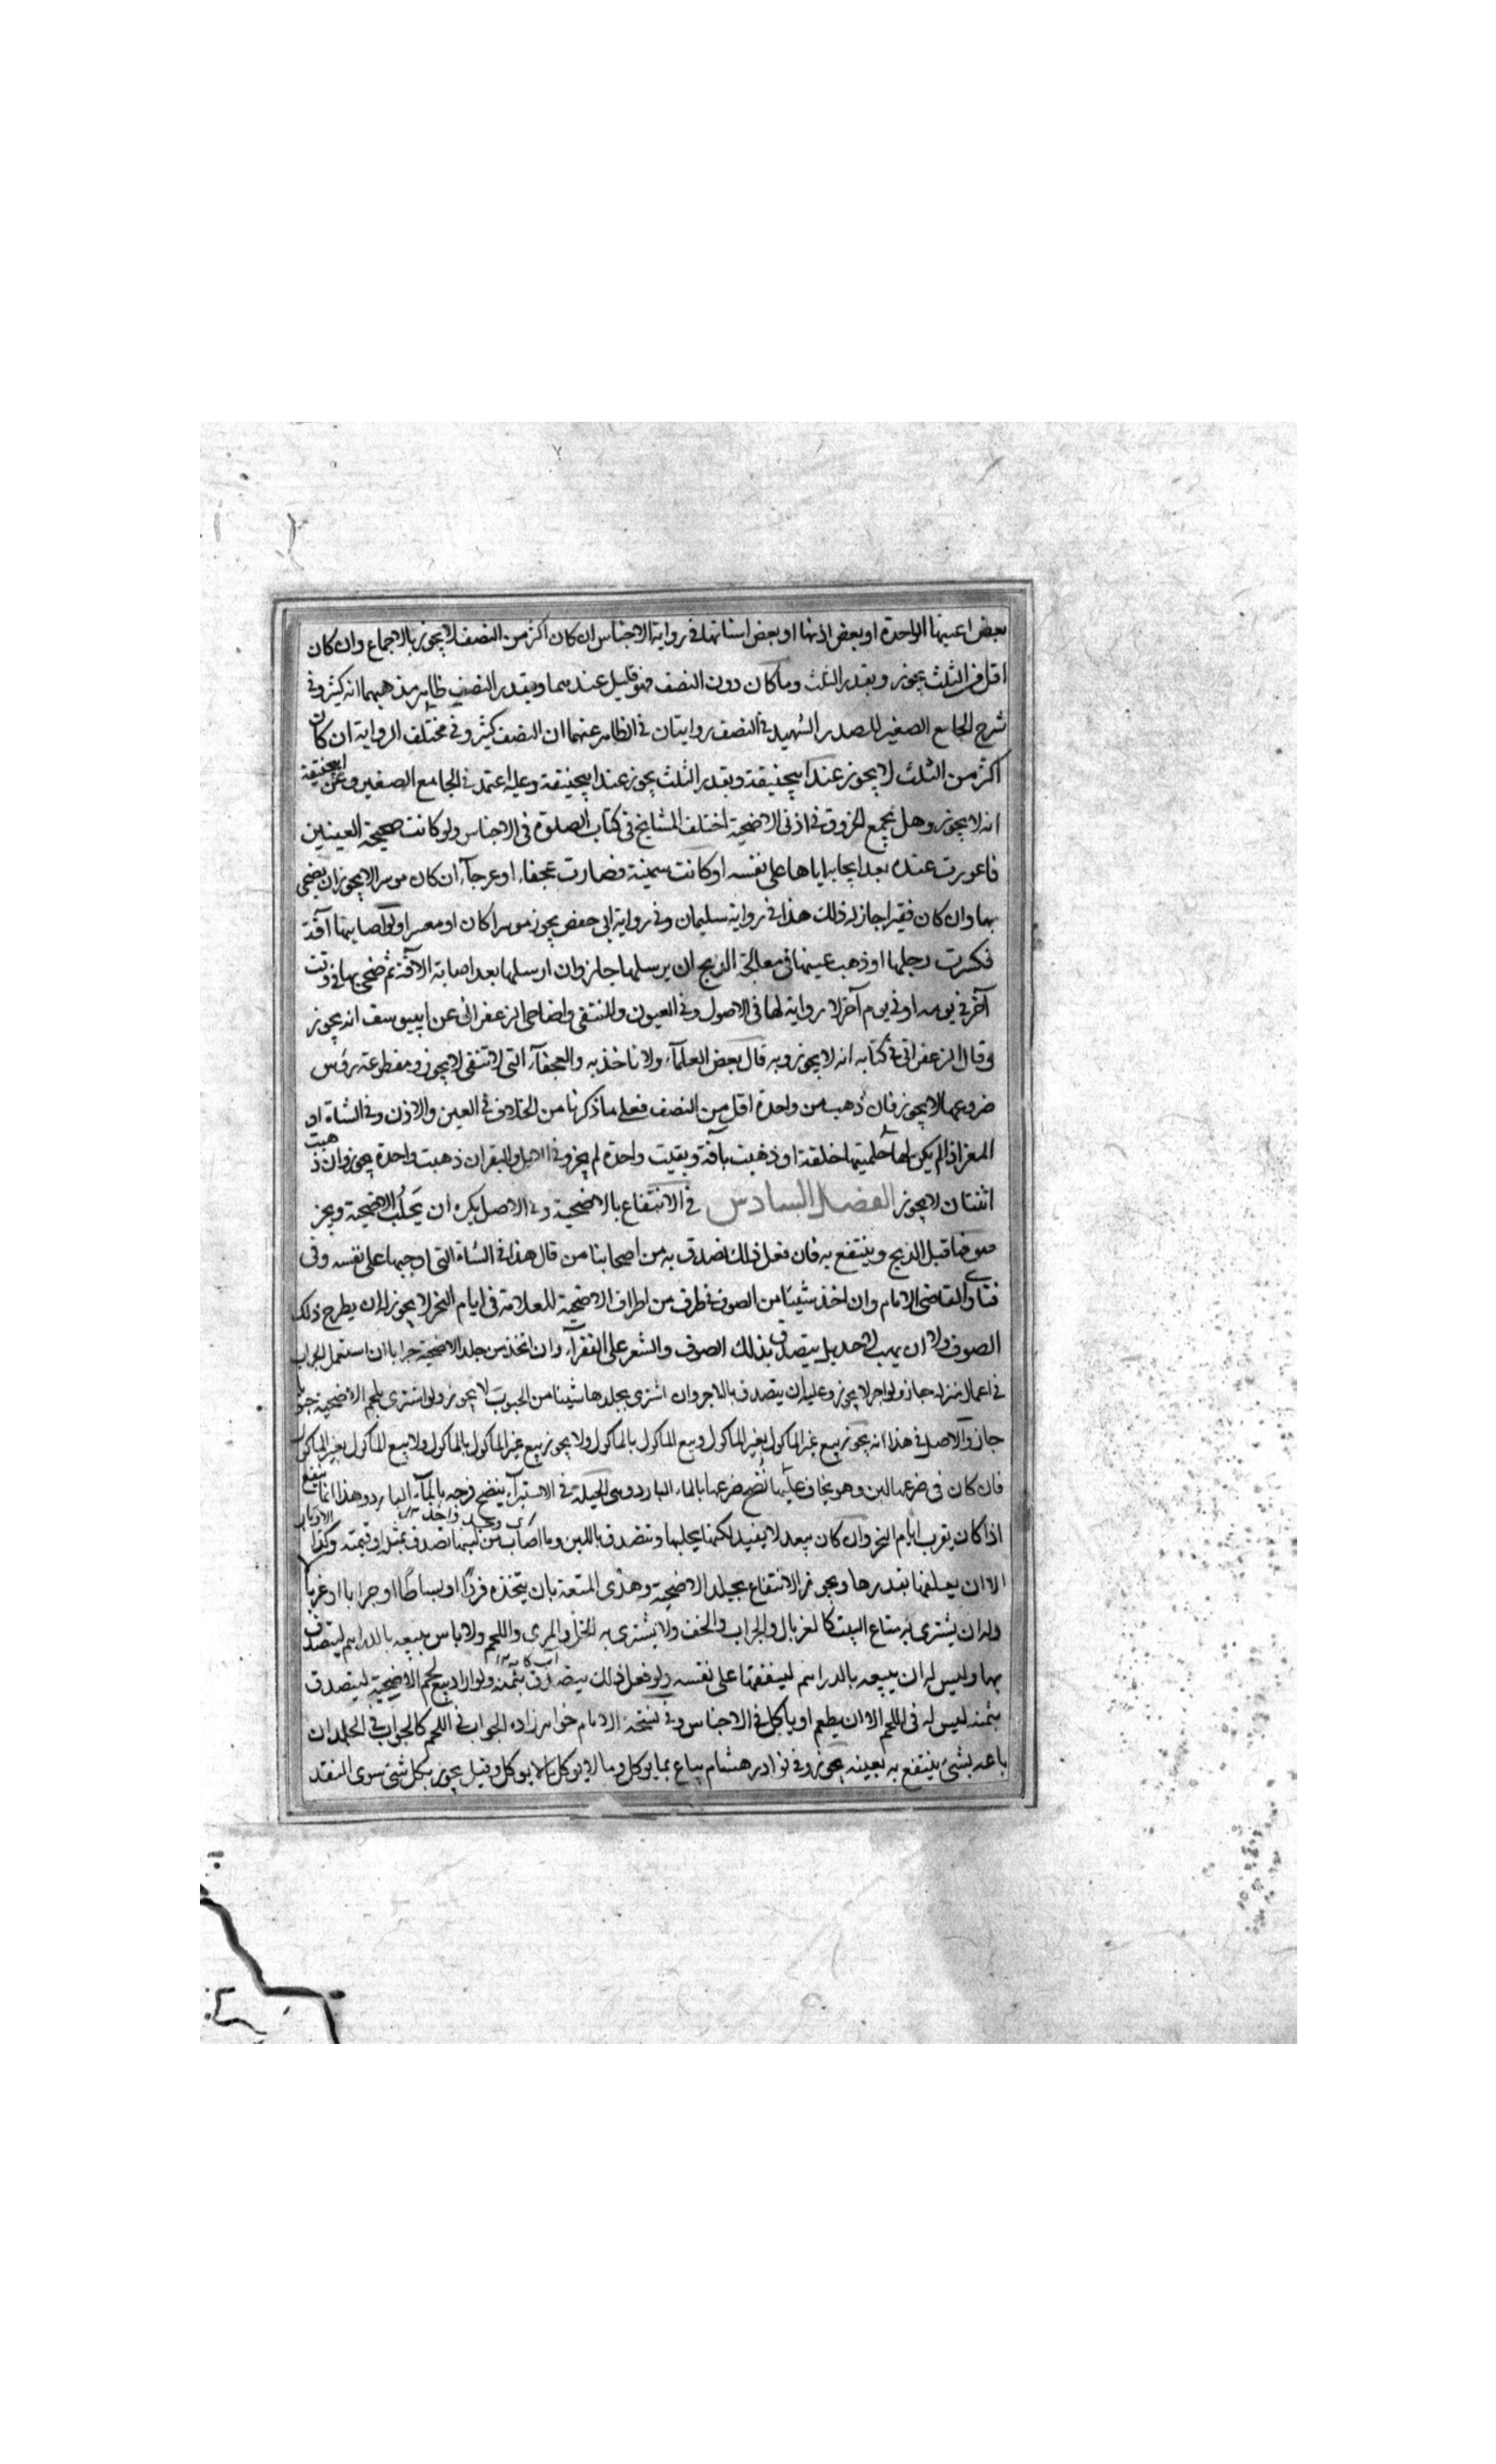 بعض اعينها الواحدة او بعض اذنها او بعض اسنانها في رواية الاجناس ان كان اكثر من النصف لا يجوز بالاجماع وان كان
اقل من الثلث يجوز وبقدر الثلث وما كان دون النصف فهو قليل عندهما وبقدر النصف ظاهر مذهبهما انه كثير وفي
شرح الجامع الصغير للصدر الشهيد في النصف روايتان في الظاهر عنهما ان النصف كثير وفي مختلف الرواية ان كان
اكثر من الثلث لا يجوز عند ابيحنيفة وبقدر الثلث يجوز عند ابيحنيفة وعليه اعتمد في الجامع الصغير وعن ابيحنيفة
انه لا يجوز وهل يجمع الخروق في اذني الاضحية اختلف المشايخ في كتاب الصلوة في الاجناس ولو كانت صحيحة العينين
فاعورت عنده بعد ايجابه اياها على نفسه او كانت سمينة فصارت عجفاء او عرجآء ان كان موسرا لا يجوز ان يضحي
بها وان كان فقيرا جاز له ذلك هذا في رواية سليمان وفي رواية ابي حفص يجوز موسرا كان او معسرا ولو اصابتها آفة
فكسرت رجلها او ذهب عينها في معالجة الذبح ان لم يرسلها جاز وان ارسلها بعد اصابة الآفة ثم ضحى بها في وقت
آخر في يومه او في يوم آخر لا رواية لها في الاصول وفي العيون والمنتقى واضاحي الزعفراني عن ابييوسف انه يجوز
وقال الزعفراني في كتابه انه لا يجوز وبه قال بعض العلمآء ولا ناخذ به والعجفآء التي لا تنقى لا يجوز ومقطوعة رؤس
ضروعها لا يجوز فان ذهب من واحدة اقل من النصف فعلى ما ذكرنا من الخلاف في العين والاذن وفي الشاة او
المعز اذا لم يكن لها حلمتيها خلقة او ذهبت بآفة وبقيت واحدة لم يجز وفي الابل والبقر ان ذهبت واحدة يجوز وان ذهبت
اثنتان لا يجوز الفصل السادس في الانتفاع بالاضحية وفي الاصل يكره ان يحلب الاضحية ويجز
صوفها قبل الذبح وينتفع به فان فعل ذلك تصدق به من اصحابنا من قال هذا في الشاة التي اوجبها على نفسه وفي
فتاوى القاضي الامام وان اخذ شيئا من الصوف في طرف من اطراف الاضحية للعلامة في ايام النحر لا يجوز له ان يطرح ذلك
الصوف ولا ان يهب لاحد بل يتصدق بذلك الصوف والشعر على الفقرآء وان اتخذ من جلد الاضحية جرابا ان استعمل الجراب
في اعمال منزله جاز ولو اجر لا يجوز وعليه ان يتصدق بالاجر وان اشترى بجلدها شيئا من الحبوب لا يجوز ولو اشترى بلحم الاضحية حبوبا
جاز والاصل في هذا انه يجوز بيع غير الماكول بغير الماكول وبيع الماكول بالماكول ولا يجوز بيع غير الماكول بالماكول ولا بيع الماكول بغير الماكول
فان كان في ضرعها لبن وهو يخاف عليها نضح ضرعها بالماء البارد وهي الحيلة في الاستبرآء ينضح فرجه بالمآء البارد وهذا انما ينفع
اذا كان بقرب ايام النحر وان كان ببعد لا يفيد لكنها يحلبها ويتصدق باللبن وما اصاب من لبنها تصدق بمثله او قيمته وكذا
الا ان يعلفها بقدرها ويجوز الانتفاع بجلد الاضحية وهدي المتعة بان يتخذه فروا او بساطا او جرابا او غربا
وله ان يشتري به متاع البيت كالغربال والجراب والخف ولا يشتري به الخل والمري واللحم ولا باس ببيعه بالدراهم ليتصدق
بها وليس له ان يبيعه بالدراهم لينفقها على نفسه ولو فعل ذلك يتصدق بثمنه ولو اراد بيع لحم الاضحية ليتصدق
بثمنه ليس له في اللحم الا ان يطعم او ياكل في الاجناس وفي نسخة الامام خواهرزاده الجواب في اللحم كالجواب في الجلد ان
باعه بشئ ينتفع به بعينه يجوز وفي نوادر هشام يباع بما يوكل وما لا يوكل بما لا يوكل وقيل يجوز بكل شئ سوى النقد